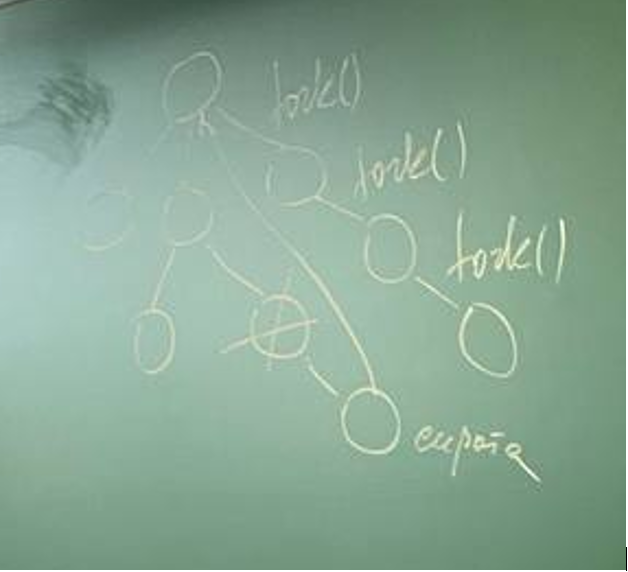 fork()
fork()
fork()
сирота